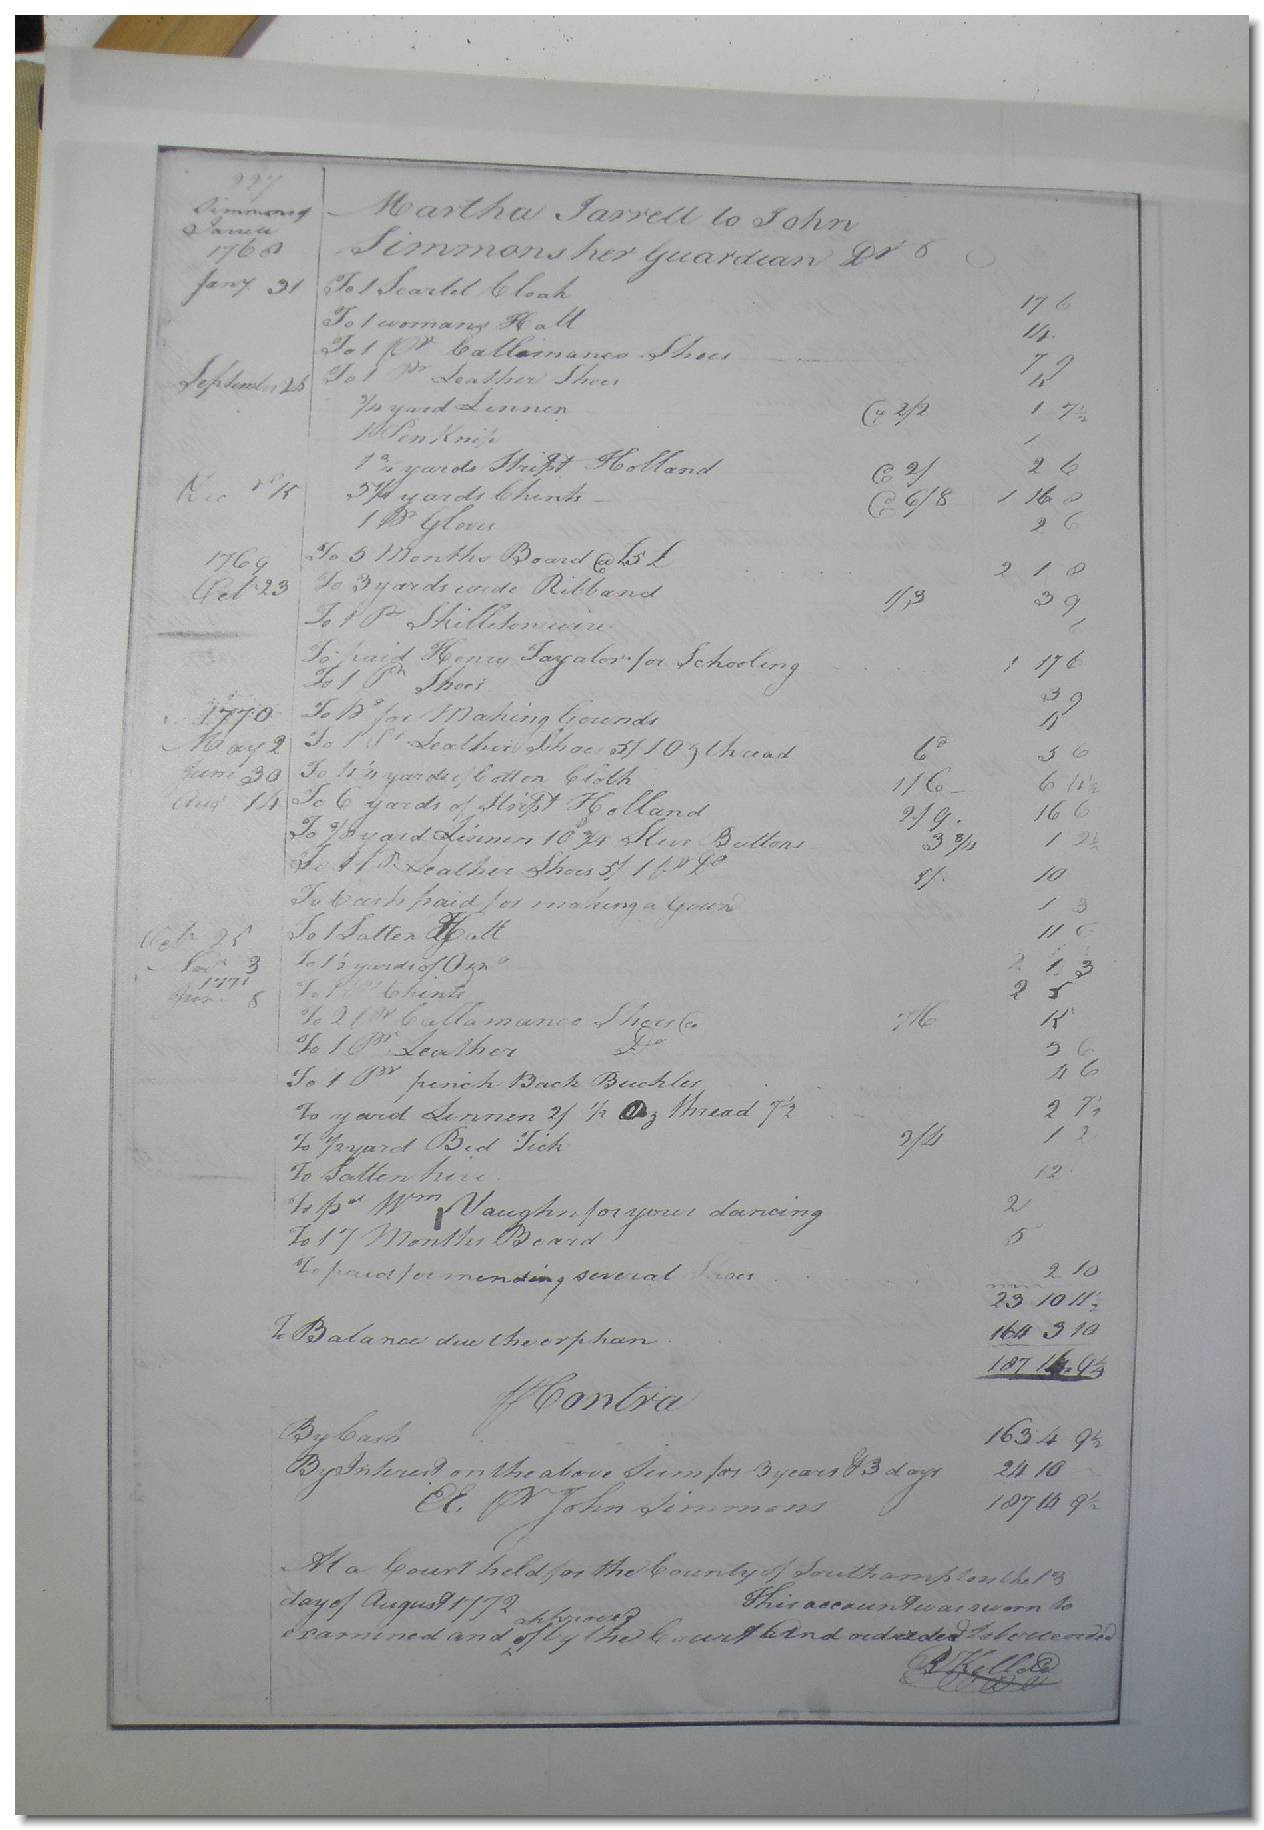 227
Simmons &
Jarrell
Martha Jarrell to John
1768
Simmons her Guardian Dr
Jany 31 To 1 Scarlet Cloak 17 6
To 1 womans Hatt 14
To 1 pr Callimanco Shoes 7 9
September 25 To 1 Pr Leather Shoes 5
3/4 yard Linnen @ 2/2 1 7½
1 Penknife 1
yards Stript Holland @ 2/ 2 6
Dec yards Chints @ 6/8 1 16 0
1 Pr Gloves 2 6
1769 To 5 Months Board @ £5 2 1 8
Oct 23 To 3 yards wide Ribband 1/3 3 9
To 1 Pr Skilleton wire
To paid Henry Tayalor for Schooling 1 17 6
To 1 Pr Shoes 3 9
1770 To Do for Making Gounds 5
May 2 To 1 Pr Leather Shoes 5/ 1 Oz thread 6d 5 6
June 30 To yards of Cotton Cloth 1/6 6 11½
Aug 14 To 6 yards of Stript Holland 2/9 16 6
To yard Linnen Buttons 3 3/4 1 2½
To 1 Pr Leather Shoes 5/ 1 pr Do 5/ 10
To Cash paid for making a Gown 1 3
Oct 25 To 1 Satten Hatt 11 6
Nov 3 To 1½ yards of 1 3
1771
8 To Chints 2 5
To 2 Pr Callamanco Shoes @ 7/6 15
To 1 Pr Leather Do 5 6
To 1 Pr pinch Back Buckles 4 6
To yard Linnen 2/ ½ Oz thread 7½ 2 7½
To ½ yard Bed Tick 2/4 1 2
To Satten 12
To pd Wm Vaughn for your dancing 2
To 17 Months Board 5
To paid for mending several Shoes 2 10
23 10 11½
To Balance due the orphan 164 3 10
187 14 9½
Contra
By Cash 163 4 9½
By Interest on the above Sum for 3 years & 3 days 24 10
EE. Pr John Simmons 187 14 9½
At a Court held for the County of Southampton the 13
day of August 1772 This account was sworn to
approved
examined and of by the Court And ordered to be recorded